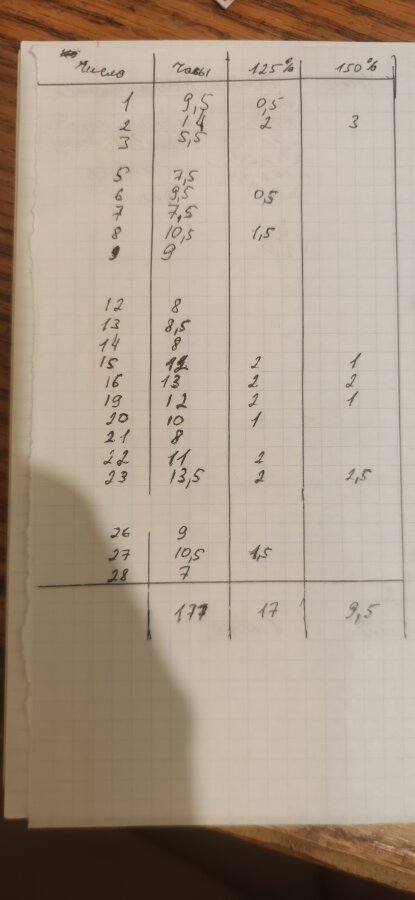 Число Часы 125% 150%
1 9,5 0,5
2 14 2 3
3 5,5
5 7,5
6 9,5 0,5
7 7,5
8 10,5 1,5
9 9
12 8
13 8,5
14 8
15 12 2 1
16 13 2 2
19 12 2 1
20 10 1
21 8
22 11 2
23 13,5 2 2,5
26 9
27 10,5 1,5
28 7
177 17 9,5